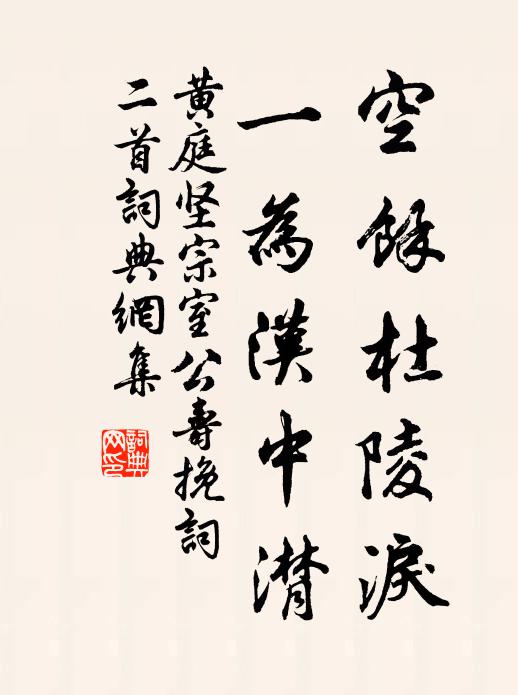 空餘杜陵淚
一為漢中潸
黄庭坚宗室公壽挽詞
二首詞典網集
詞典
网印